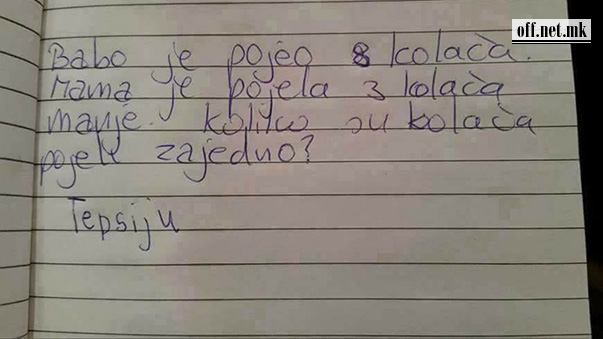 off.net.mk
Babo je pojeo 8 kolača.
Mama je pojela 3 kolača
manje. Koliko su kolača
pojeli zajedno?
Tepsiju